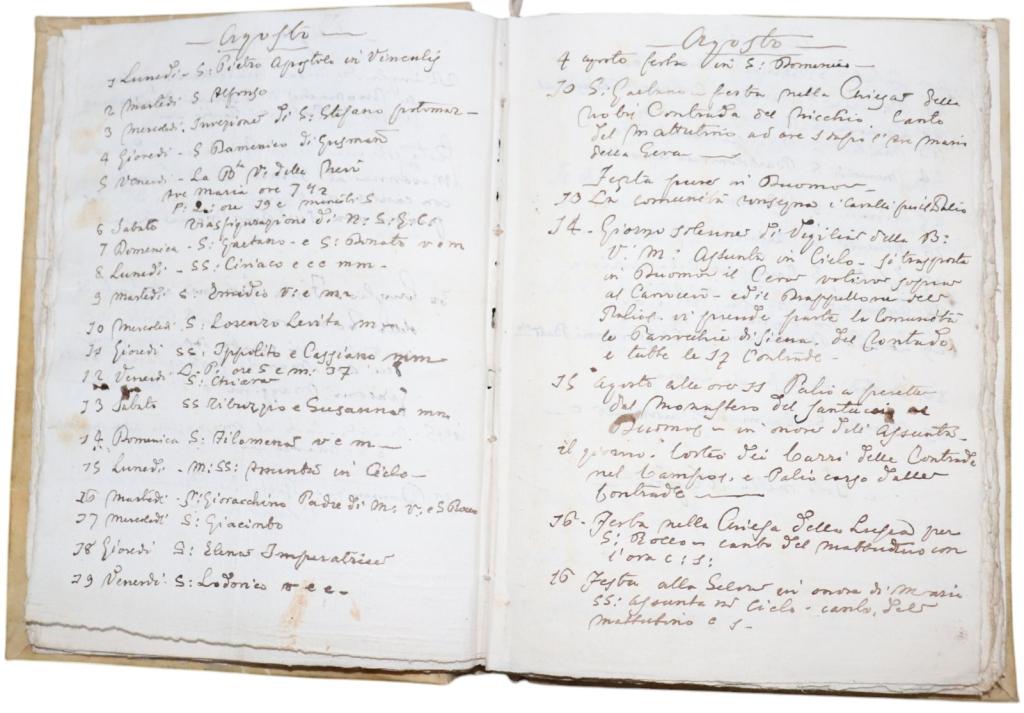 — Agosto —
1 Lunedi - S: Pietro Apostolo in Vinculis
2 Martedi S Alfonso
3 Mercoledi. Invenzione di S: Stefano protomar -
4 Giovedi - S Domenico di Gusman
5 Venerdi - La Bta V: della Neve
tre Maria ore 7 1/2
P: L: ore 19 e minuti 5
6 Sabato Trasfigurazione di N: S: G: C:
7 Domenica - S: Gaetano - e S: Donato v e m
8 Lunedi - SS: Ciriaco e cc mm -
9 Martedi S: Emidio V: e m:
10 Mercoledi S: Lorenzo Levita m
11 Giovedi SS: Ippolito e Cassiano mm
L. P: ore 5 e m: 37
12 Venerdi S: Chiara
13 Sabato SS Tiburzio e Susanna mm
14 Domenica S: Filomena v e m —
15 Lunedi - M: SS: Assunta in Cielo -
16 Martedi - S: Gioacchino Padre di M: V: e S Rocco
17 Mercoledi S: Giacinto
18 Giovedi S: Elena Imperatrice
19 Venerdi S: Lodovico
— Agosto —
4 agosto festa in S: Domenico —
10 S: Gaetano - festa nella Chiesa della
Nobil Contrada del Nicchio Canto
del Mattutino ad ore 1 dopo l'Ave Maria
della Sera —
Festa pure in Duomo -
13 La comunità consegna i Cavalli per il Palio
14 - Giorno solenne di Vigilia della B:
V: M: Assunta in Cielo - si trasporta
in Duomo il Cero votivo sopra
al Carroccio - ed il Drappellone del
Palio. vi prende parte la Comunità
le Parrochie di Siena. del Contado
e tutte le 17 Contrade -
15 Agosto alle ore 11 Palio a
dal Monastero del Santuccio al
Duomo - in onore dell' Assunta -
il giorno. Corteo dei Carri delle Contrade
nel Campo, e Palio corso dalle
Contrade —
16 - Festa nella Chiesa della Lupa per
S: Rocco - canto del mattutino con
l'ora c: s:
16 Festa alla Selva in onore di Maria
SS: Assunta in Cielo - canto del
mattutino c s -